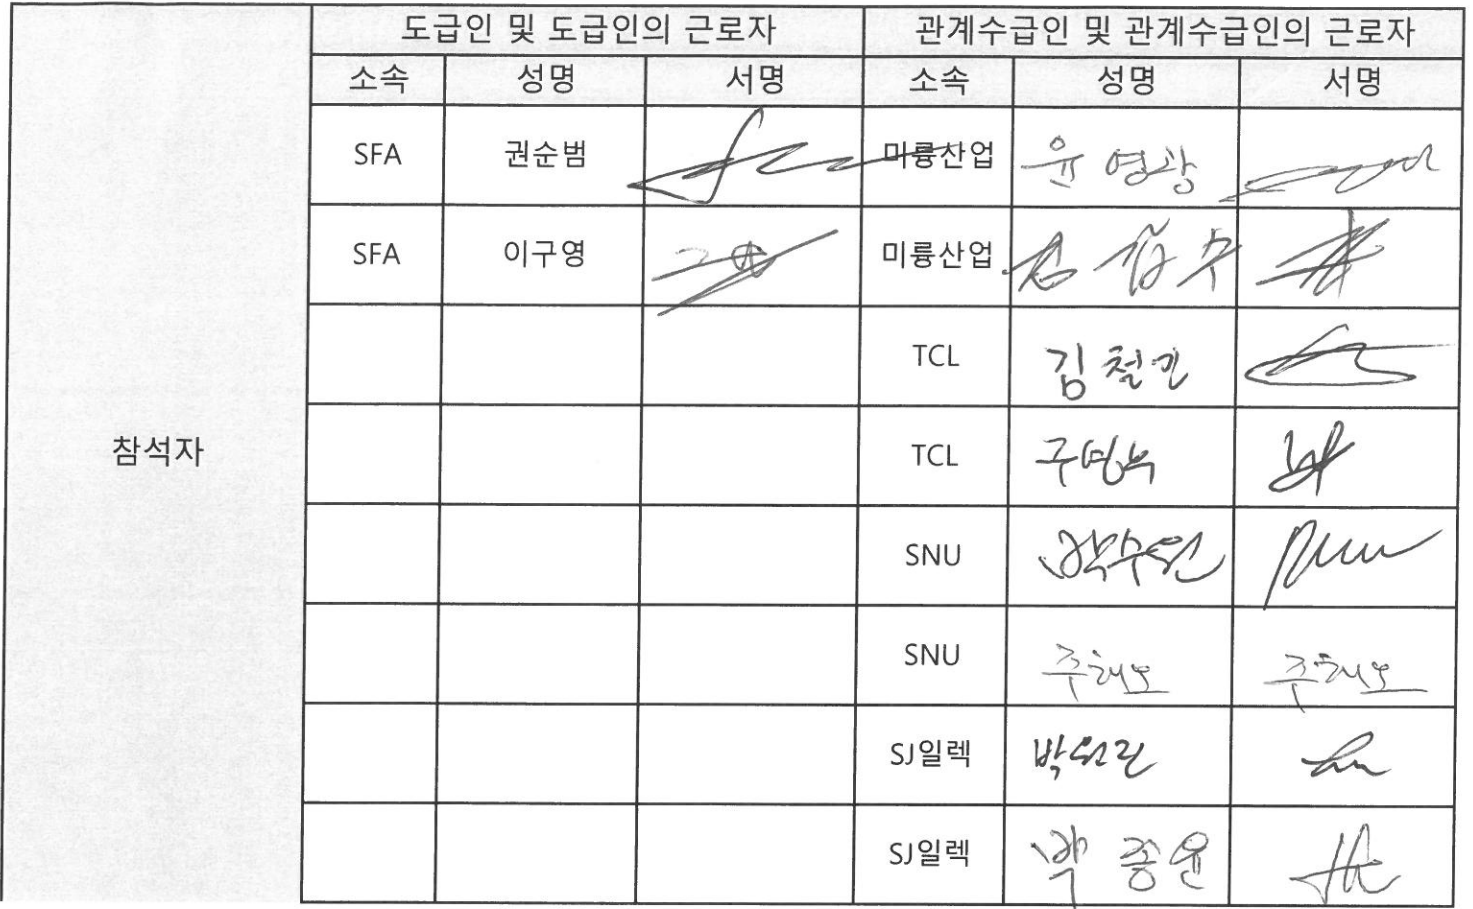 도급인 및 도급인의 근로자 관계수급인 및 관계수급인의 근로자
소속 성명 서명 소속 성명 서명
SFA 권순범 미륭산업 윤영광
SFA 이구영 미륭산업
TCL 김철민
참석자 TCL
SNU 박수원
SNU 주해오 주해오
SJ일렉
SJ일렉 박종윤